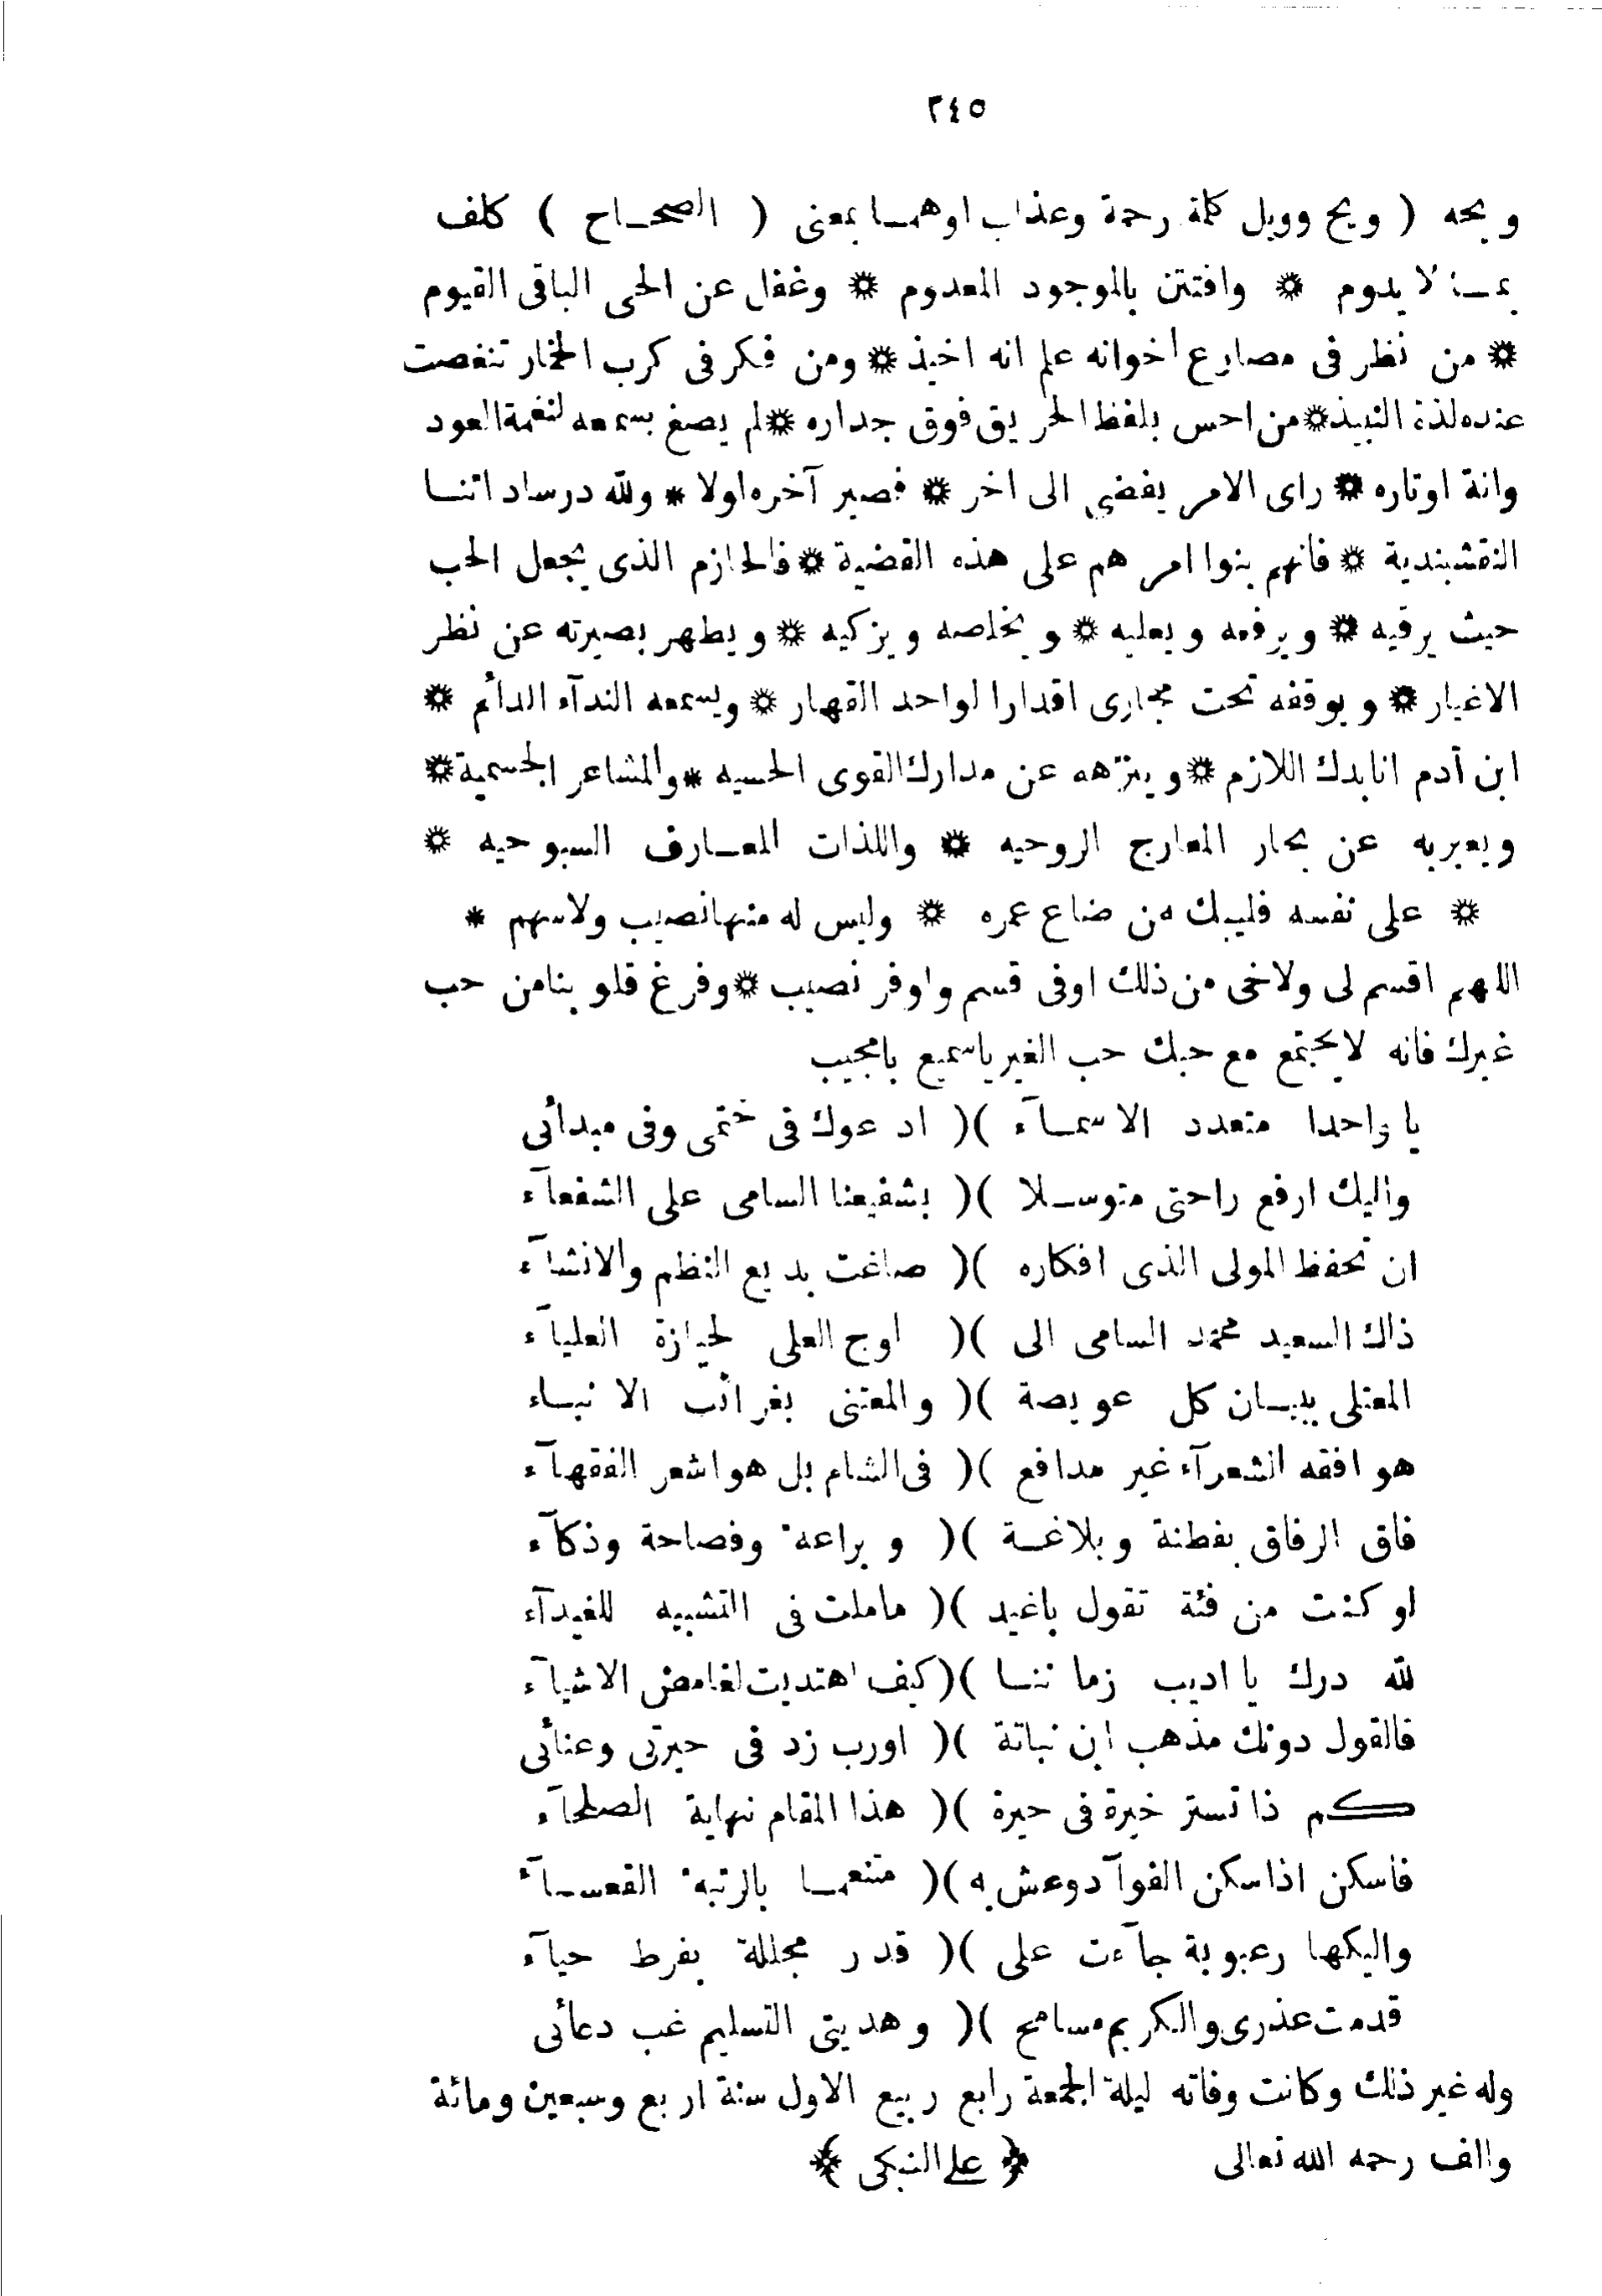 ٢٤٥
ويحه ( ويح وويل كلمة رحمة وعذاب اوهمـا بمعنى ( الصحـاح ) كلف
بمـا لا يدوم * وافتتن بالموجود المعدوم * وغفل عن الحى الباقى القيوم
* من نظر فى مصارع اخوانه علم انه اخيذ * ومن فكر فى كرب الخمار تنغصت
عنده لذة النبيذ * من احس بلفظ الحريق فوق جداره * لم يصغ بسمعه لنغمة العود
وانة اوتاره * راى الامر يفضى الى اخر * فصير آخره اولا * ولله در ساداتنـا
النقشبندية * فانهم بنوا امرهم على هذه القضية * فالحازم الذى يجعل الحب
حيث يرقيه * ويرفعه ويعليه * ويخلصه ويزكيه * ويطهر بصيرته عن نظر
الاغيار * ويوقفه تحت مجارى اقدار الواحد القهار * ويسمعه الندآء الدائم *
ابن آدم انا بدك اللازم * وينزهه عن مدارك القوى الحسيه * والمشاعر الجسمية *
ويعبربه عن بحار المعارج الروحيه * واللذات المعـارف السبوحيه *
* على نفسه فليبك من ضاع عمره * وليس له منها نصيب ولا سهم *
اللهم اقسم لى ولاخى من ذلك اوفى قسم واوفر نصيب * وفرغ قلوبنا من حب
غيرك فانه لا يجتمع مع حبك حب الغير ياسميع يامجيب
يا واحدا متعدد الاسمـآء )( ادعوك فى ختمى وفى مبدائى
واليك ارفع راحتى متوسـلا )( بشفيعنا السامى على الشفعآء
ان تحفظ المولى الذى افكاره )( صاغت بديع النظم والانشآء
ذاك السعيد محمد السامى الى )( اوج العلى لحيازة العليآء
المعتلى ببيـان كل عويصة )( والمعتنى بغرائب الانبـاء
هو افقه الشعرآء غير مدافع )( فى الشام بل هو اشعر الفقهآء
فاق الرفاق بفطنة وبلاغـة )( وبراعة وفصاحة وذكآء
او كنت من فئة تقول باغيد )( ماملت فى التشبيه للغيدآء
لله درك يا اديب زماننـا )( كيف اهتديت لغامض الاشيآء
فالقول دونك مذهب ابن نباتة )( اورب زد فى حيرتى وعنائى
كم ذا تستر خبرة فى حيرة )( هذا المقام نهاية الصلحآء
فاسكن اذا سكن الفوآد وعش به )( متنعمـا بالرتبة القعسـآء
واليكها رعبوبة جآءت على )( قدر مجللة بفرط حيآء
قدمت عذرى والكريم مسامح )( وهديتى التسليم غب دعائى
وله غير ذلك وكانت وفاته ليلة الجمعة رابع ربيع الاول سنة اربع وسبعين ومائة
والف رحمه الله تعالى ﴿ على النبكى ﴾